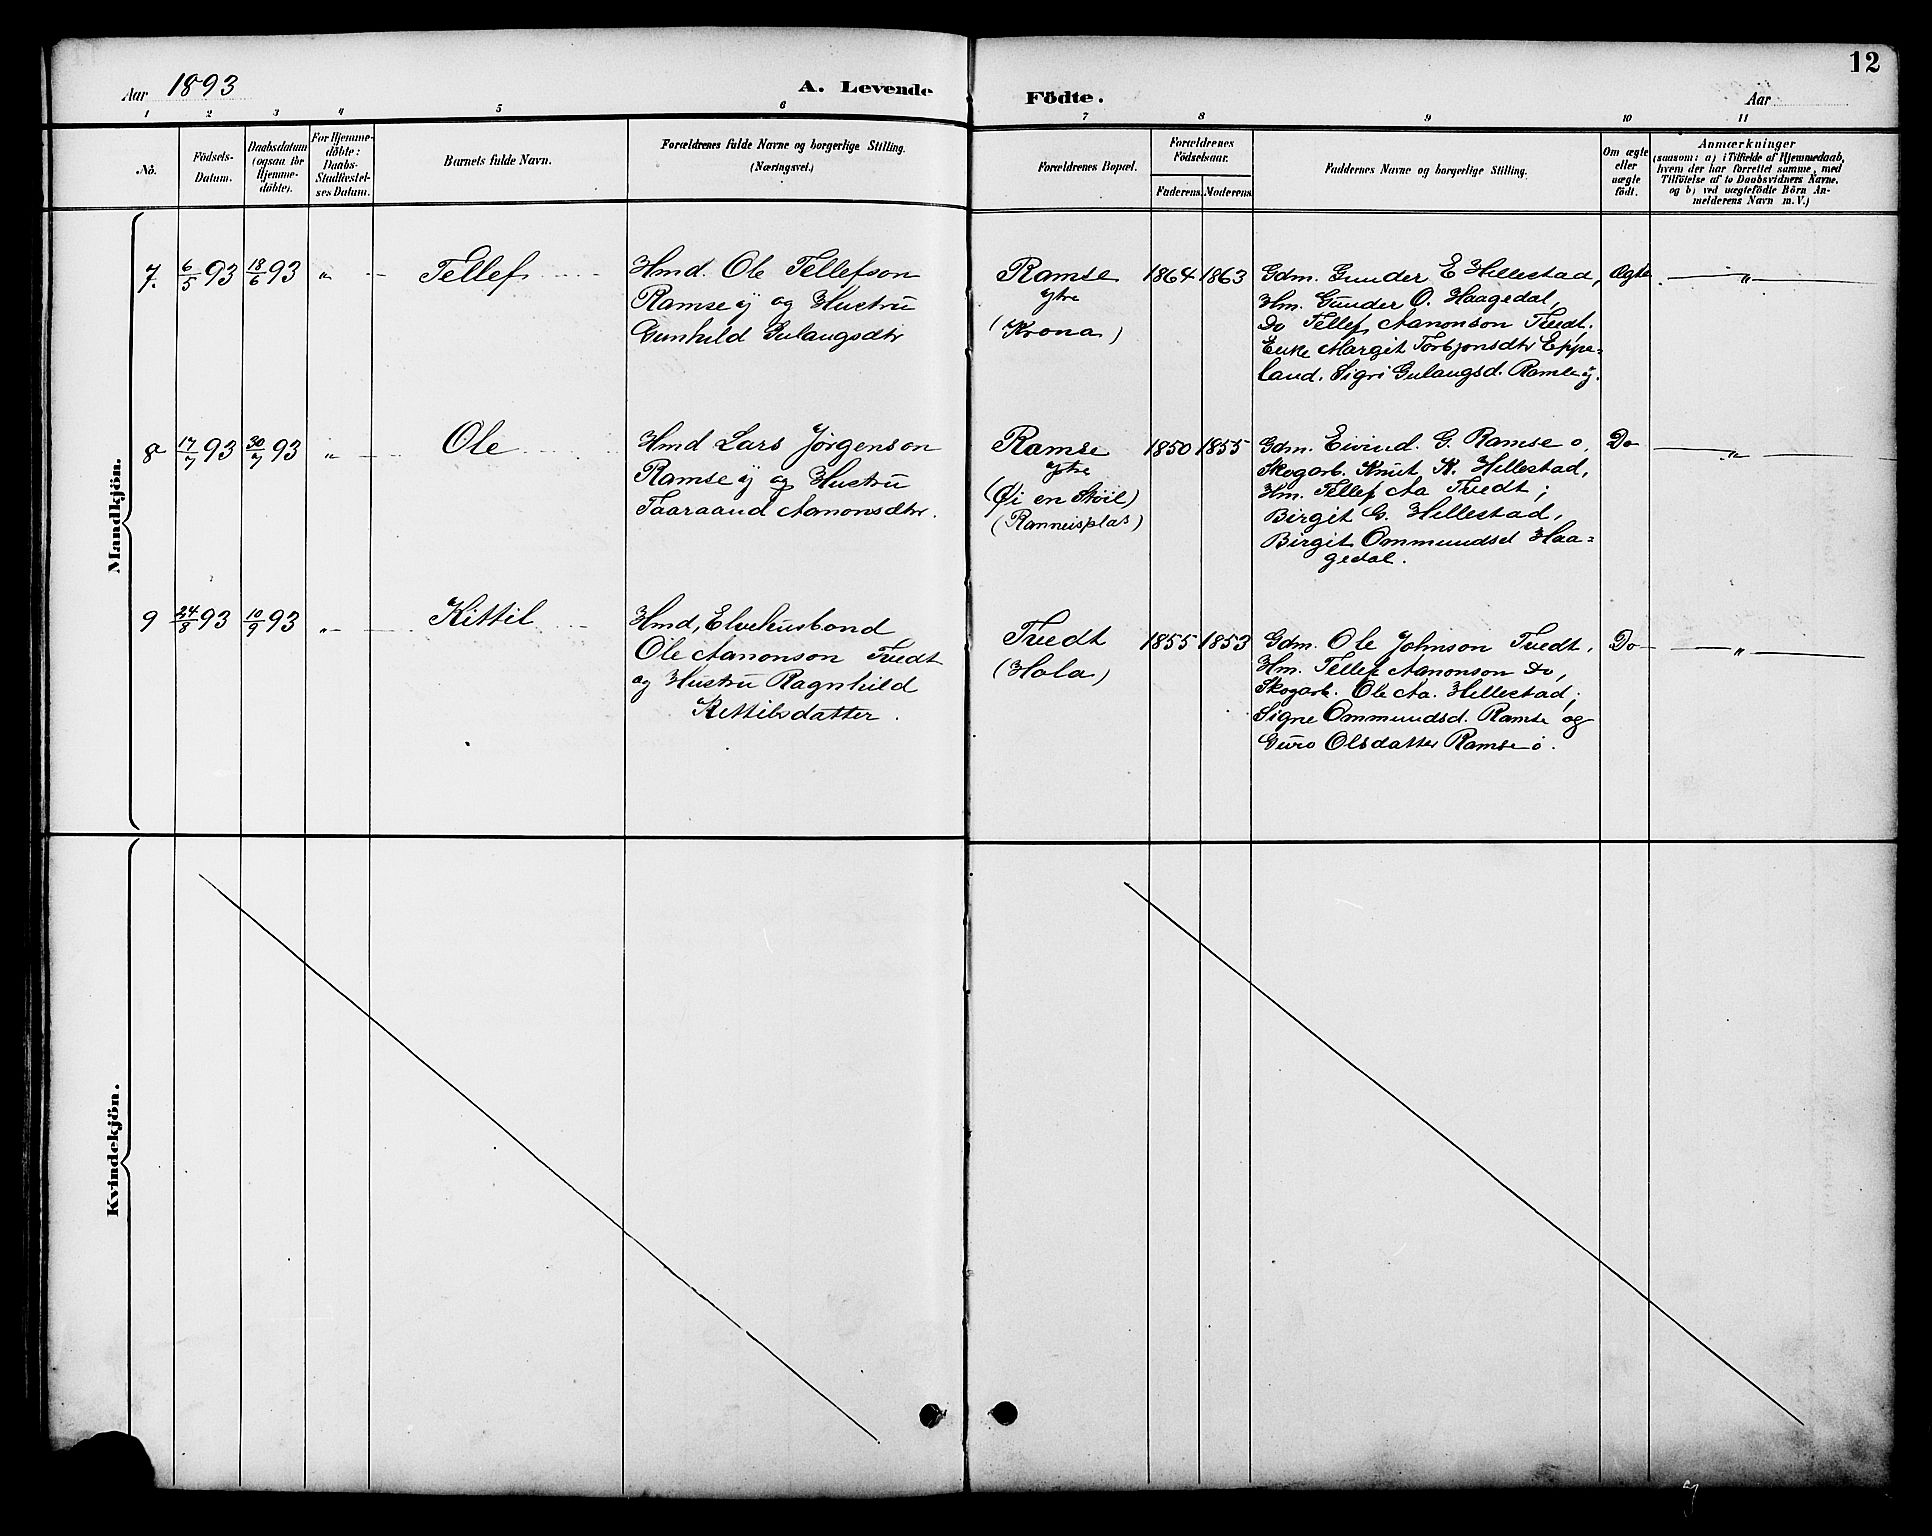 12
Aar 1893
A. Levende Födte.
Aar
1 2 3 4 5 6 7 8 9 10 11
No.
Födsels-
Datum.
Daabsdatum
(ogsaa for
Hjemme-
döbte).
For Hjemme-
döbte:
Daabs-
Stadfæstel-
ses Datum.
Barnets fulde Navn.
Forældrenes fulde Navne og borgerlige Stilling.
(Næringsvei.)
Forældrenes Bopæl.
Forældrenes
Födselsaar.
Faderens. Moderens.
Faddernes Navne og borgerlige Stilling.
Om ægte
eller
uægte
födt.
Anmærkninger
(saasom: a) i Tilfælde af Hjemmedaab,
hvem der har forrettet samme, med
Tilföielse af to Daabsvidners Navne,
og b) ved uægtefödte Börn An-
melderens Navn m. V.)
Mandkjön.
7. 6/5 93 18/6 93 „ Tellef
Hmd. Ole Tellefson
Ramse ÿ og Hustru
Gunhild Gulaugsdtr
Ramse
Ytre
(Krona)
1864 1863
Gdm. Gunder E Hillestad,
Hm. Gunder O. Haagedal,
Do Tellef Aanonson Tvedt.
Enke Margit Torbjonsdtr Eppe-
land. Sigri Gulaugsd. Ramse ÿ.
Ægte „
8 17/7 93 30/7 93 „ Ole
Hmd Lars Jørgenson
Ramse ÿ og Hustru
Taaraand Aanonsdtr.
Ramse
Ytre
(Øi en Støil)
(Ranneisplas)
1850 1855
Gdm. Eivind. G. Ramse ø,
Skogarb. Knut K. Hillestad,
Hm. Tellef Aa Tvedt;
Birgit G. Hillestad,
Birgit Ommundsd Haa-
gedal.
Do „
9 24/8 93 10/9 93 „ Kittil
Hmd, Elvehusbond
Ole Aanonson Tvedt
og Hustru Ragnhild
Kittilsdatter.
Tvedt
(Hola)
1855 1853
Gdm. Ole Johnson Tvedt,
Hm. Tellef Aanonson Do,
Skogarb. Ole Aa. Hillestad;
Signe Ommundsd. Ramse og
Guro Olsdatter Ramse ø.
Do „
Kvindekjön.